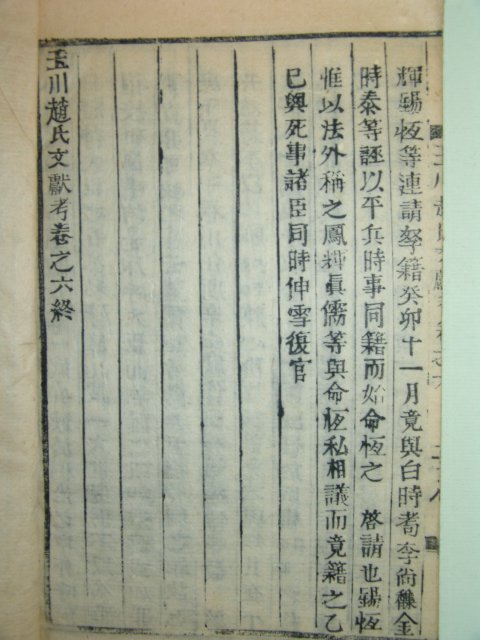 輝錫恆等連請孥籍癸卯十一月竟與白時耉李尙𩡺金
時泰等誣以平兵時事同籍而始命恆之 啓請也錫恆
惟以法外稱之鳳輝眞儒等與命恆私相議而竟籍之乙
巳與死事諸臣同時伸雪復官
玉川趙氏文獻考卷之六終